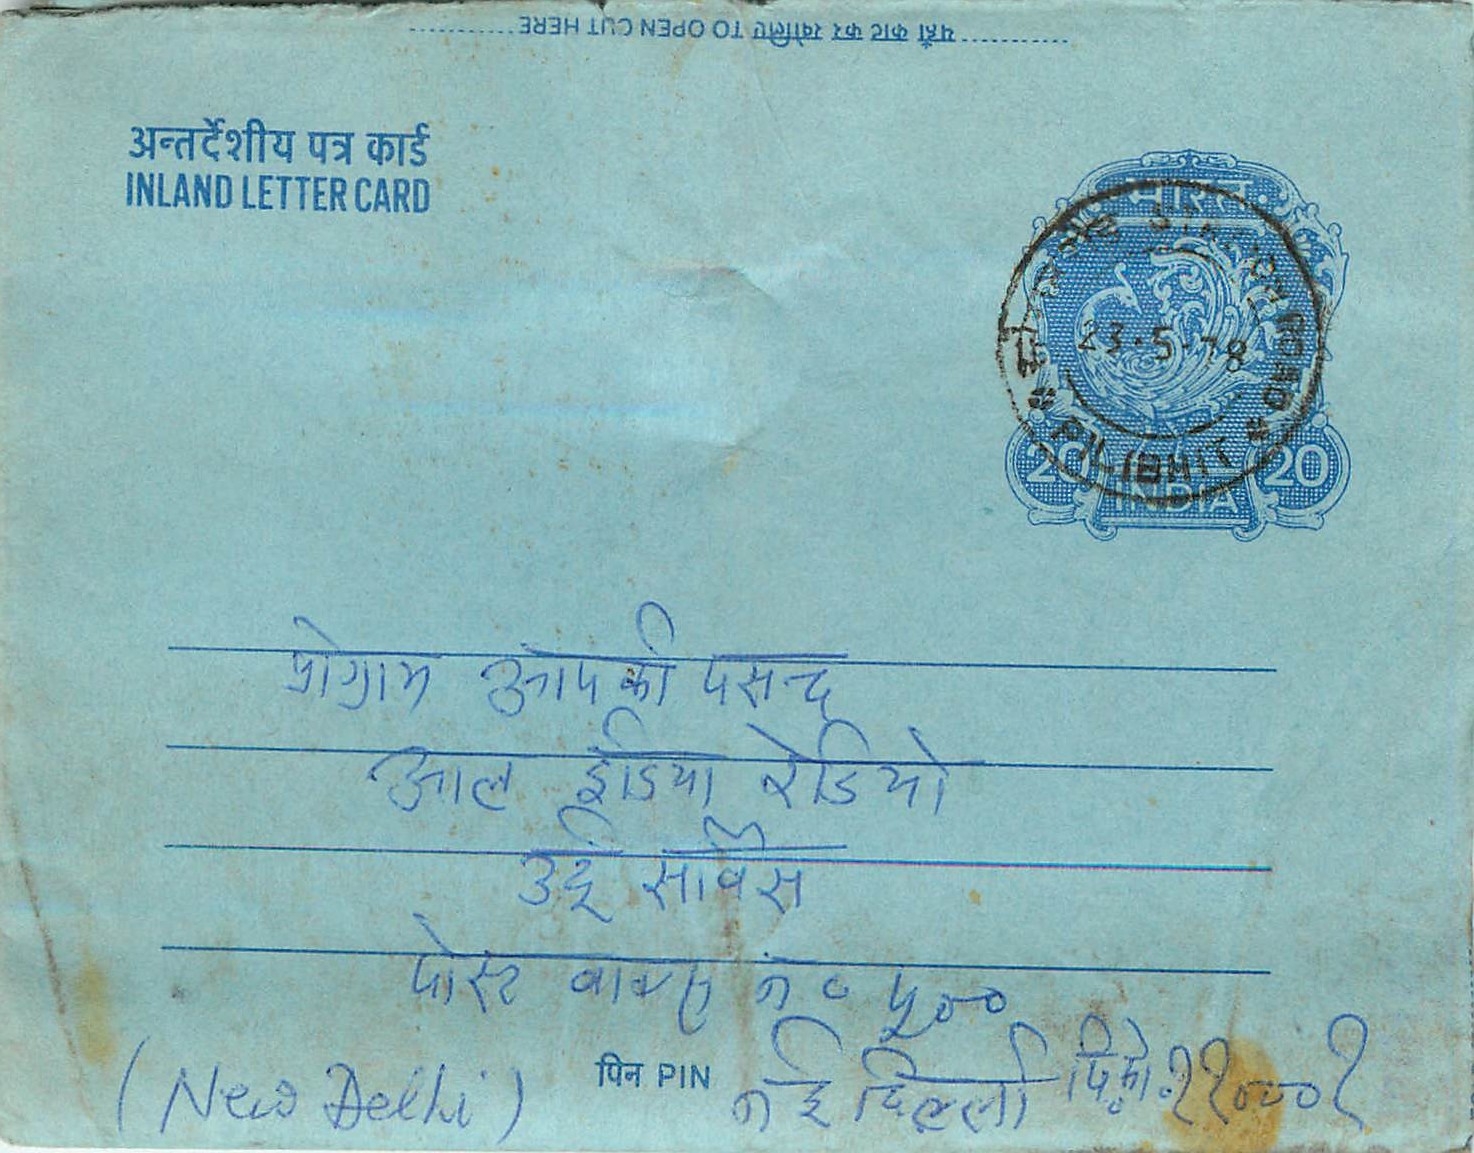 यहाँ काट कर खोलिए TO OPEN CUT HERE
अन्तर्देशीय पत्र कार्ड
INLAND LETTER CARD
भारत
STATION ROAD
23·5·78
PILIBHIT
20 20
INDIA
प्रोग्राम आपकी पसन्द
आल इंडिया रेडियो
उर्दू सर्विस
पोस्ट बाक्स नं० ५००
पिन PIN
नई दिल्ली पिको.११०००१
(New Delhi)